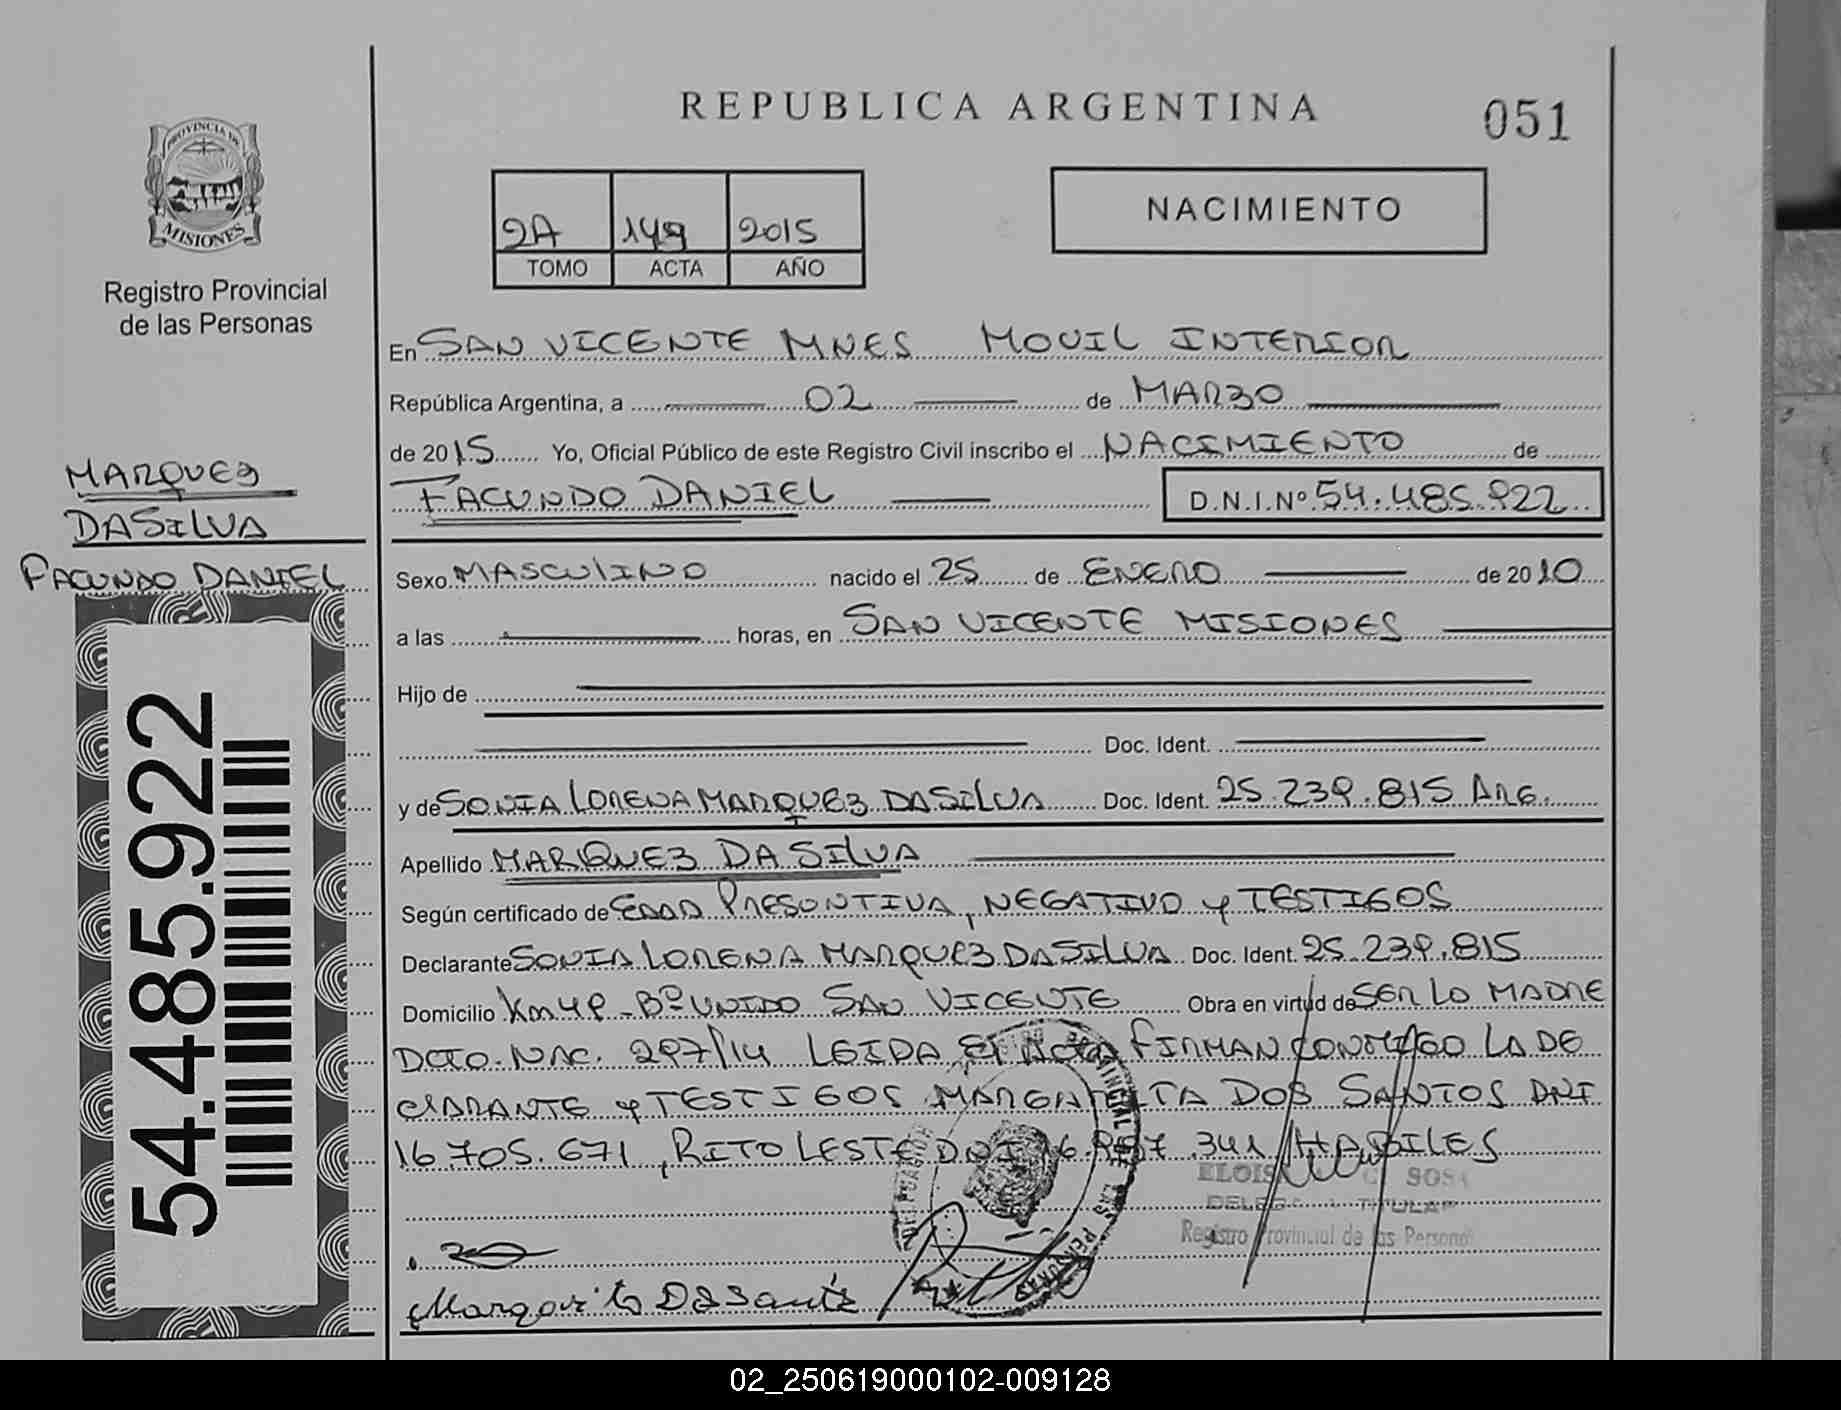 REPUBLICA ARGENTINA
051
PROVINCIA DE
MISIONES
Registro Provincial
de las Personas
2A 149 2015
TOMO ACTA AÑO
NACIMIENTO
En SAN VICENTE MNES MOVIL INTERIOR
República Argentina, a 02 de MARZO
de 2015 Yo, Oficial Público de este Registro Civil inscribo el NACIMIENTO de
FACUNDO DANIEL D.N.I.Nº 54.485.922
MARQUEZ
DASILVA
FACUNDO DANIEL
54.485.922
Sexo MASCULINO nacido el 25 de ENERO de 2010
a las horas, en SAN VICENTE MISIONES
Hijo de
Doc. Ident.
y de SONIA LORENA MARQUEZ DASILVA Doc. Ident. 25.239.815 ARG.
Apellido MARQUEZ DA SILVA
Según certificado de EDAD PRESONTIVA, NEGATIVO y TESTIGOS
Declarante SONIA LORENA MARQUEZ DASILVA Doc. Ident. 25.239.815
Domicilio Km 49 - Bº UNIDO SAN VICENTE Obra en virtud de SER LO MADRE
DCTO. NAC. 297/14 LEIDA EL ACTA FIRMAN CONMIGO LA DE
CLARANTE y TESTIGOS MARGARITA DOS SANTOS DNI
16.705.671, RITO LESTE DNI 341 HABILES
ELOISA C. SOSA
DELEGADA TITULAR
Registro Provincial de las Personas
Margarita DosSantos
02_250619000102-009128